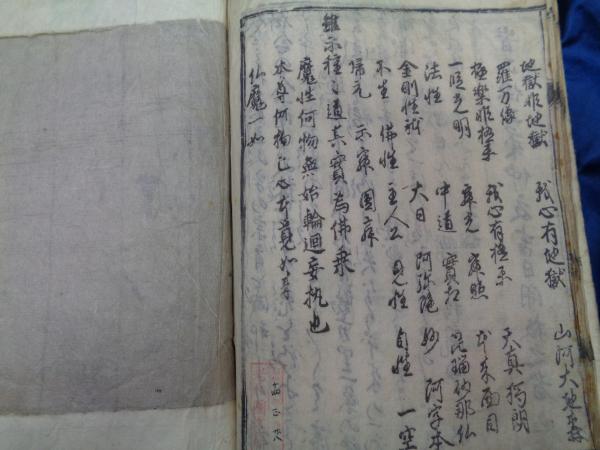 地獄非地獄 我心有地獄 山河大地森
羅万像
極楽非極楽 我心有極楽 天真独朗
一段光明 寂光 寂照 本来面目
法性 中道 實相 毘瑠遮那仏
金剛性 大日 阿弥陀 妙 阿字本
不生 佛性 主人公 見性 自性 一空
帰元 示寂 圓寂
雖示種々道其實為佛乗
魔性何物無始輪迴妄执也
本尊何物己心本覚如来
仏魔一如